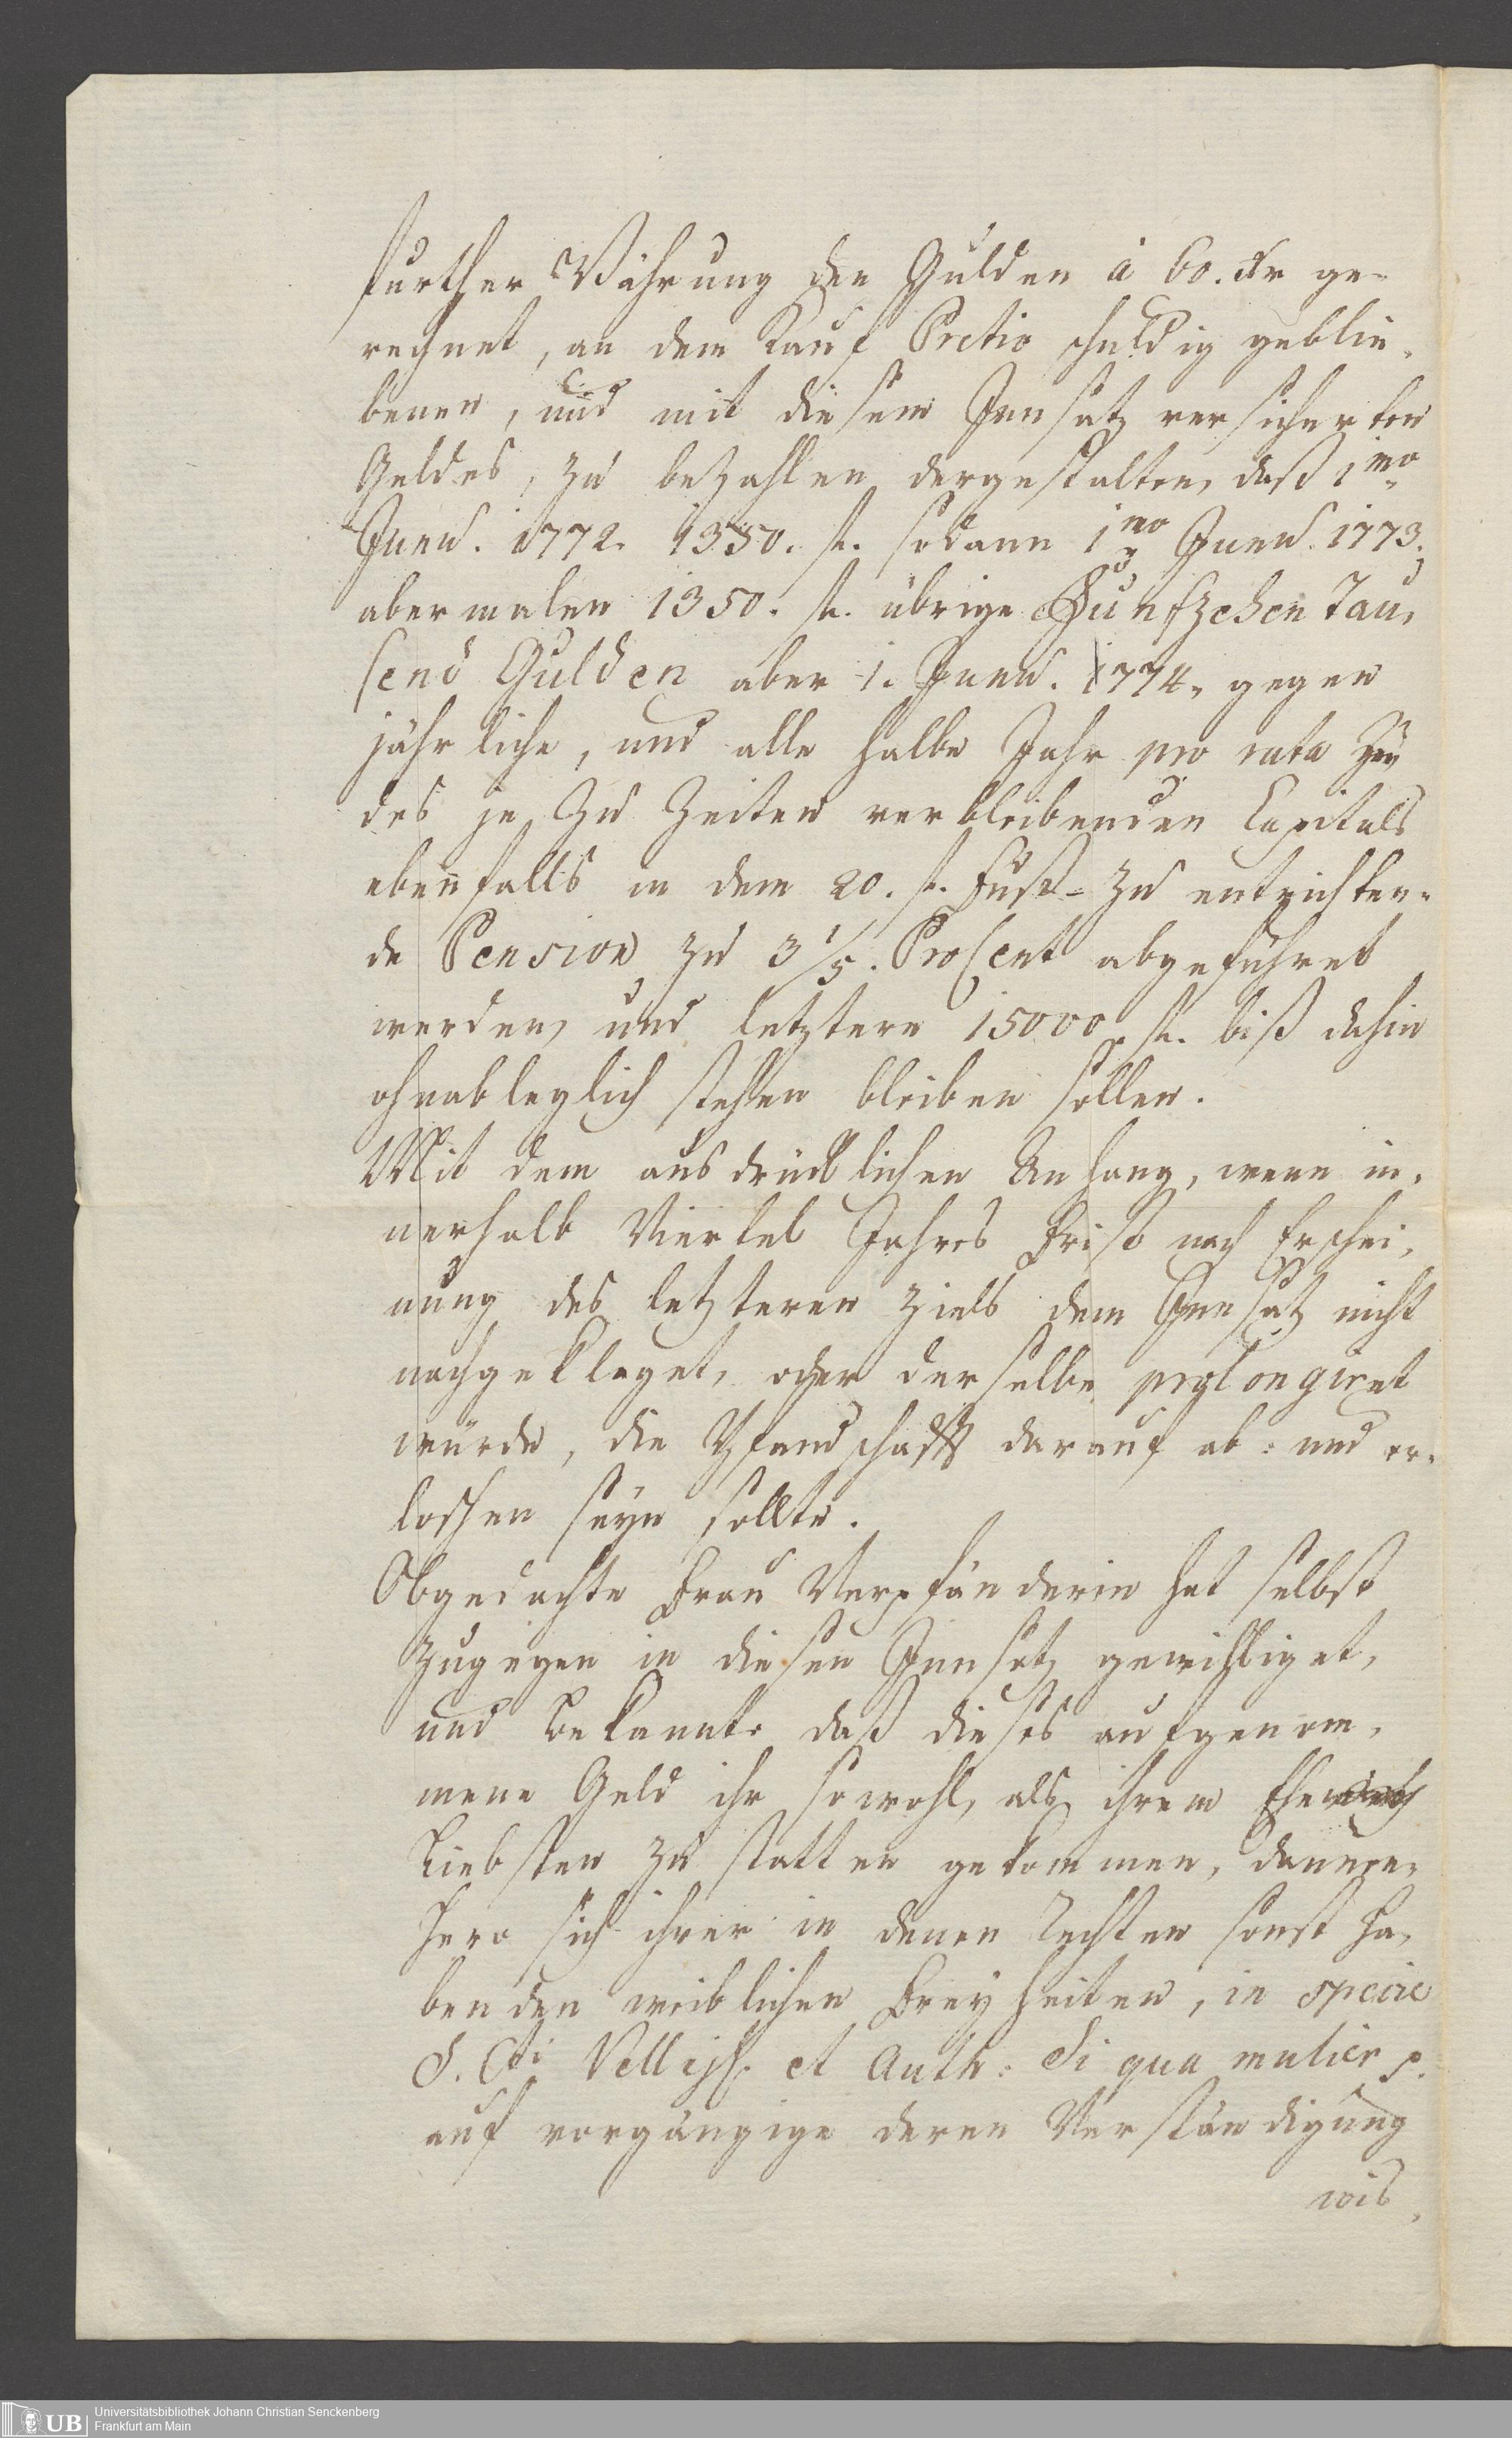 further Währung den Gulden à 60. xr ge-
rechnet, an dem Kauf Pretio schuldig geblie-
benen, und mit diesem Innsatz versicherten
Geldes, zu bezahlen dergestalten, daß 1mo
Juny. 1772. 1350. fl. sodann 1mo Juny. 1773.
abermalen 1350. fl. übrige Funfzehen Tau-
send Gulden aber 1. Juny. 1774. gegen
jährliche, und alle halbe Jahr pro rata
des je zu Zeiten verbleibenden Capitals
ebenfalls in dem 20. fl. Fuß zu entrichten-
de Pension zu 3 1/5. ProCent abgeführet
werden, und letztere 15000. fl. biß dahin
ohnableglich stehen bleiben sollen.
Mit dem ausdrücklichen Anhang, wenn in-
nerhalb Viertel Jahres Frist nach Erschei-
nung des letzteren Ziels dem Innsatz nicht
nachgeklaget, oder derselbe prolongiret
würde, die Pfandschafft darauf ab- und er-
loschen seyn sollte.
Obgedachte Frau Verpfänderin hat selbst
zugegen in diesen Innsatz gewilliget,
und bekannt daß dieses aufgenom-
mene Geld ihr sowohl, als ihrem Ehe
Liebsten zu statten gekommen, dannen-
hero sich ihrer in denen Rechten sonst ha-
benden weiblichen Freyheiten, in specie
S. Cti Vellejs. et Auth: Si qua mulier p.
auf vorgängige deren Verständigung
wis
Universitätsbibliothek Johann Christian Senckenberg
Frankfurt am Main
UB